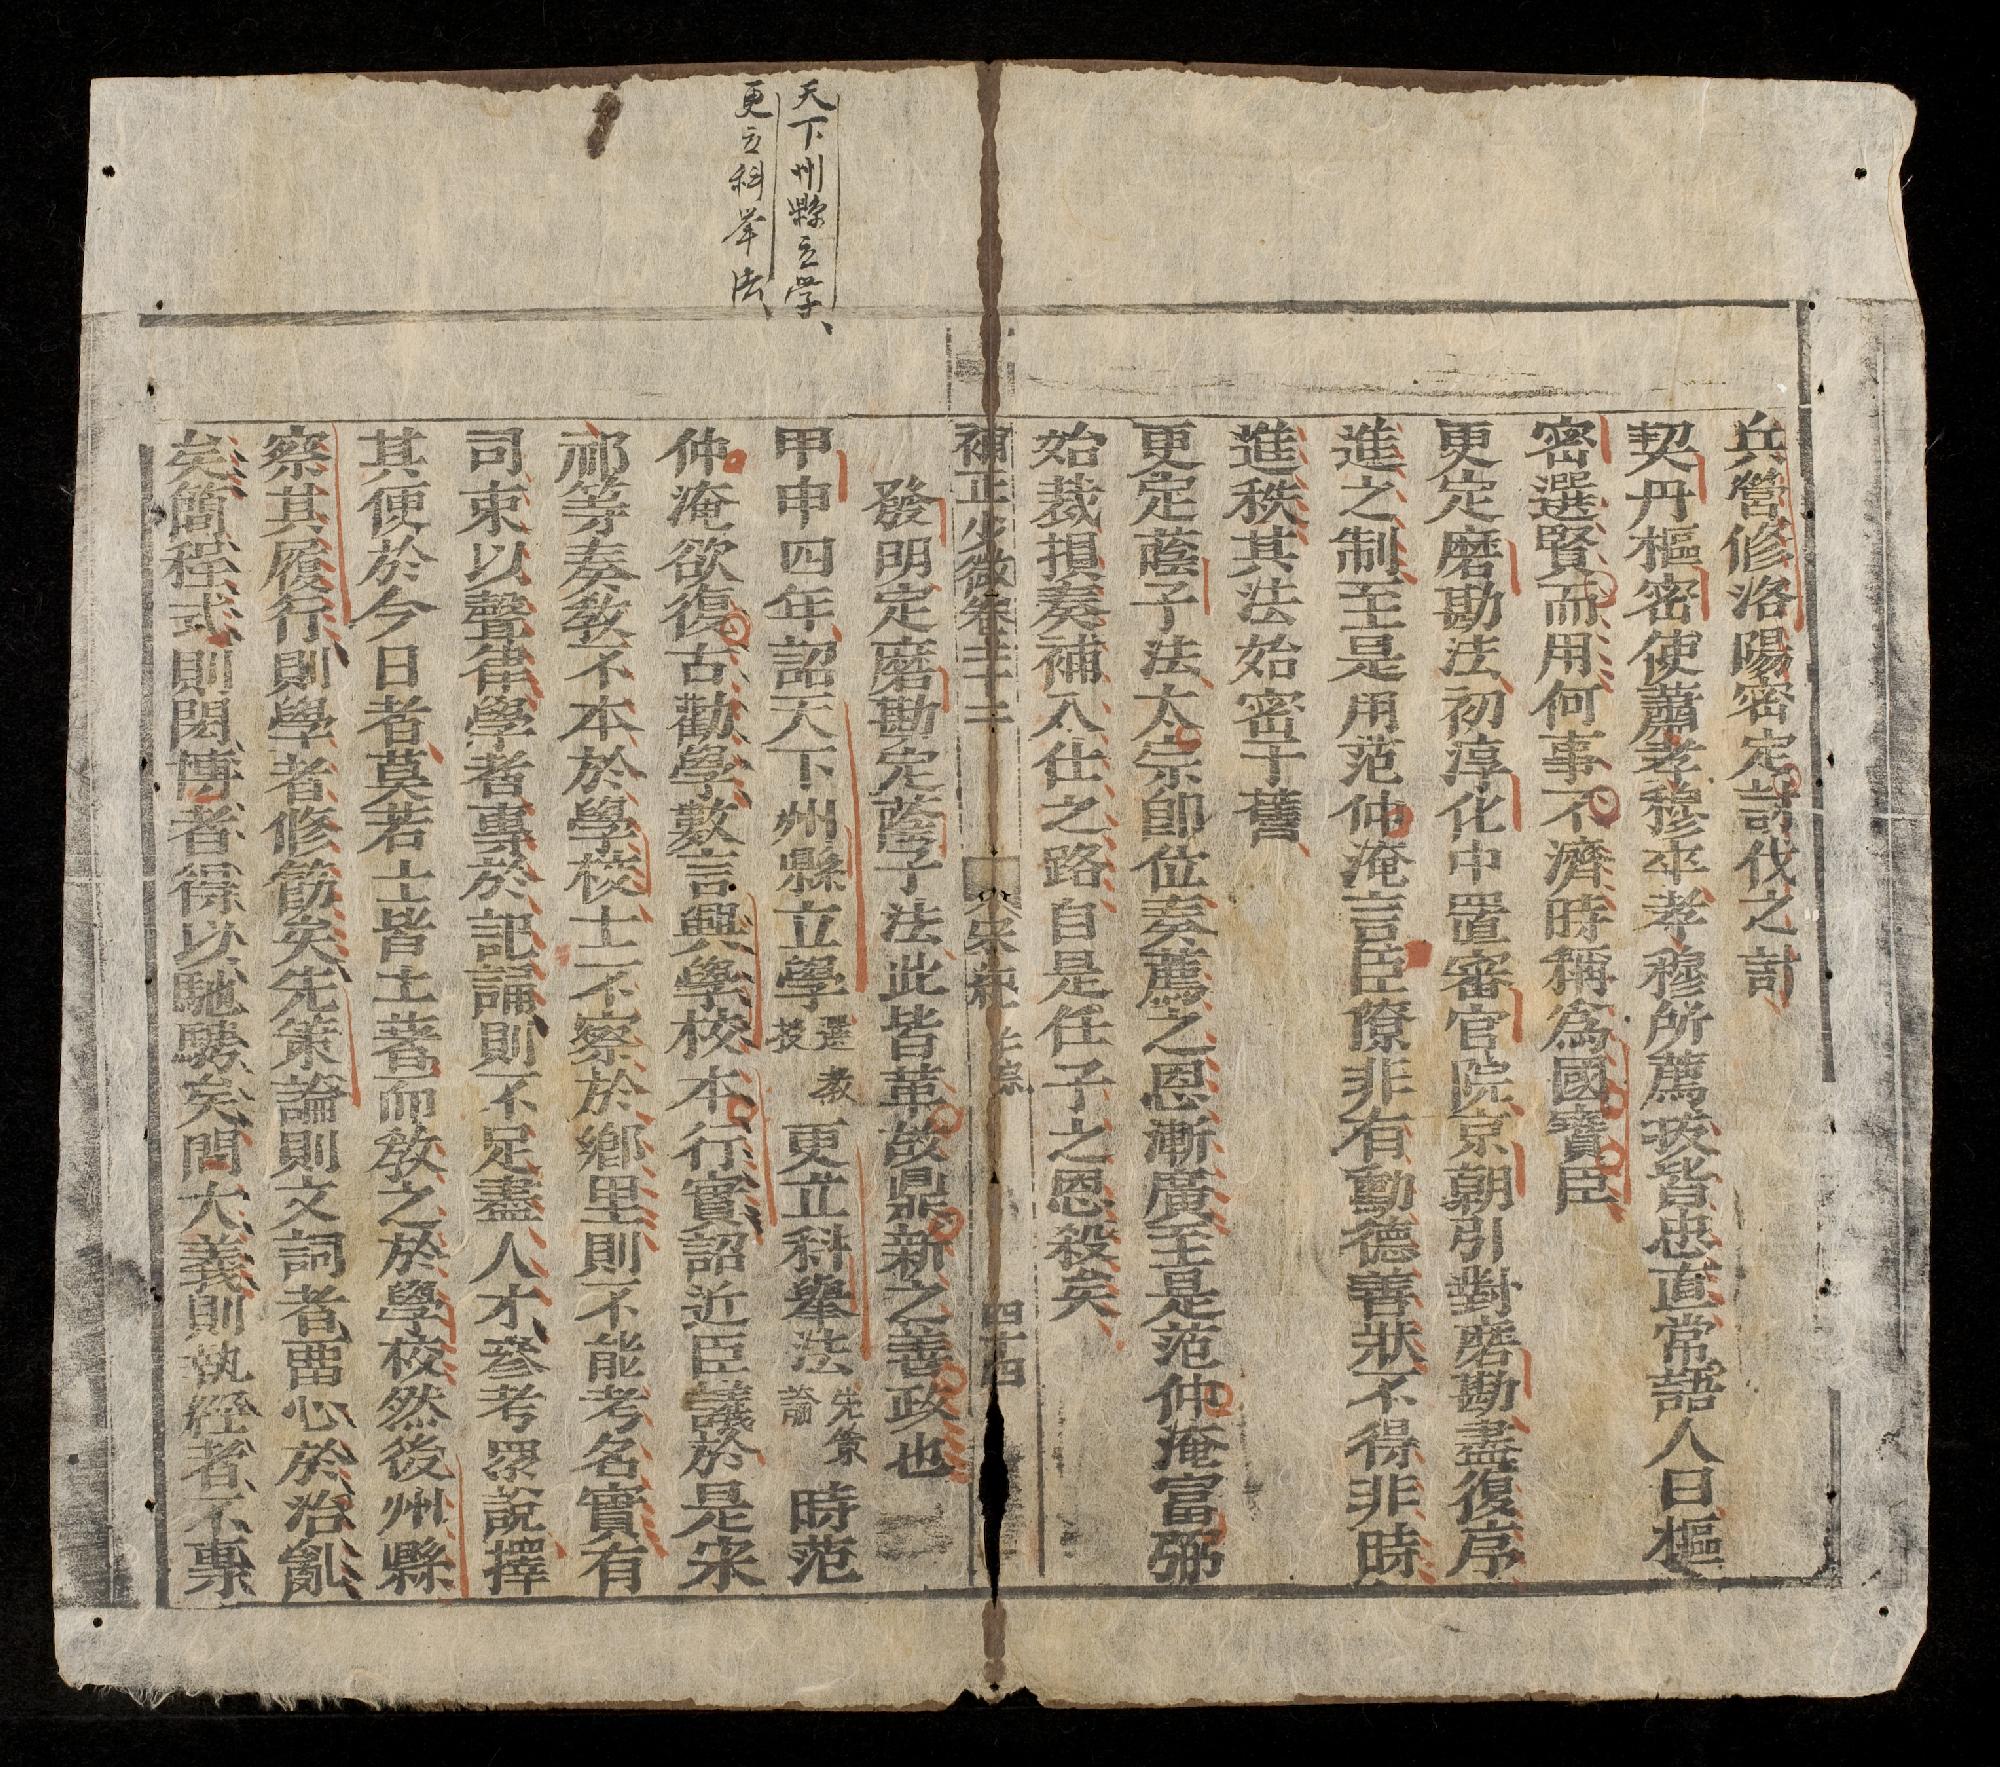 天下州縣立学
更立科举法
兵營修洛陽密定討伐之計
契丹樞密使蕭孝穆卒孝穆所薦拔皆忠直常語人曰樞
密選賢而用何事不濟時稱爲國寶臣
更定磨勘法初淳化中置審官院京朝引對磨勘盡復序
進之制至是用范仲淹言臣僚非有勳德善狀不得非時
進秩其法始密于舊
更定蔭子法太宗即位奏薦之恩漸廣至是范仲淹富弼
始裁損奏補入仕之路自是任子之恩殺矣
補正少微卷二十二 宋紀仁宗 四十四
發明定磨勘定蔭子法此皆革故鼎新之善政也
甲申四年詔天下州縣立學選教授更立科舉法先策論時范
仲淹欲復古勸學數言興學校本行實詔近臣議於是宋
祁等奏教不本於學校士不察於鄉里則不能考名實有
司束以聲律學者專於記誦則不足盡人才參考眾說擇
其便於今日者莫若士皆土著而教之於學校然後州縣
察其履行則學者修飭矣先策論則文詞者留心於治亂
矣簡程式則閎博者得以馳騁矣問大義則執經者不專